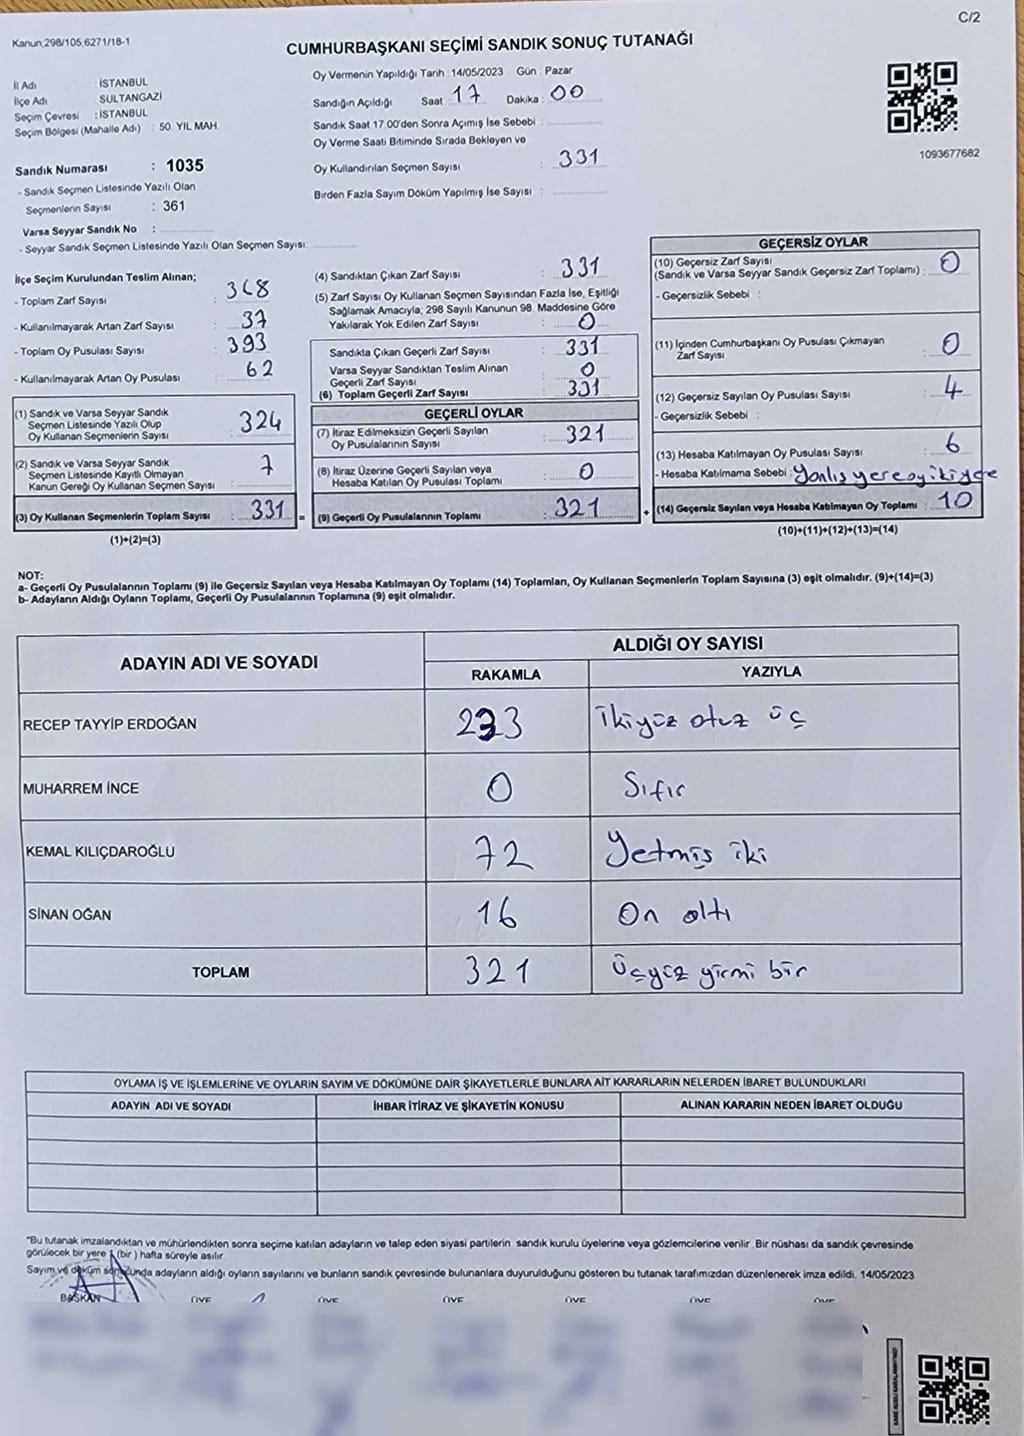 C/2
Kanun;298/105,6271/18-1
CUMHURBAŞKANI SEÇİMİ SANDIK SONUÇ TUTANAĞI
İl Adı : İSTANBUL
İlçe Adı : SULTANGAZİ
Seçim Çevresi : İSTANBUL
Seçim Bölgesi (Mahalle Adı) : 50. YIL MAH.
Oy Vermenin Yapıldığı Tarih : 14/05/2023 Gün : Pazar
Sandığın Açıldığı Saat : 17 Dakika : 00
Sandık Saat 17.00'den Sonra Açımış İse Sebebi :
Oy Verme Saati Bitiminde Sırada Bekleyen ve
Oy Kullandırılan Seçmen Sayısı : 331
Birden Fazla Sayım Döküm Yapılmış İse Sayısı :
1093677682
Sandık Numarası : 1035
- Sandık Seçmen Listesinde Yazılı Olan
Seçmenlerin Sayısı : 361
Varsa Seyyar Sandık No :
- Seyyar Sandık Seçmen Listesinde Yazılı Olan Seçmen Sayısı:
İlçe Seçim Kurulundan Teslim Alınan;
- Toplam Zarf Sayısı : 368
- Kullanılmayarak Artan Zarf Sayısı : 37
- Toplam Oy Pusulası Sayısı : 393
- Kullanılmayarak Artan Oy Pusulası : 62
(1) Sandık ve Varsa Seyyar Sandık
Seçmen Listesinde Yazılı Olup
Oy Kullanan Seçmenlerin Sayısı : 324
(2) Sandık ve Varsa Seyyar Sandık
Seçmen Listesinde Kayıtlı Olmayan
Kanun Gereği Oy Kullanan Seçmen Sayısı : 7
(3) Oy Kullanan Seçmenlerin Toplam Sayısı : 331 =
(1)+(2)=(3)
(4) Sandıktan Çıkan Zarf Sayısı : 331
(5) Zarf Sayısı Oy Kullanan Seçmen Sayısından Fazla İse, Eşitliği
Sağlamak Amacıyla, 298 Sayılı Kanunun 98. Maddesine Göre
Yakılarak Yok Edilen Zarf Sayısı : 0
Sandıkta Çıkan Geçerli Zarf Sayısı : 331
Varsa Seyyar Sandıktan Teslim Alınan
Geçerli Zarf Sayısı : 0
(6) Toplam Geçerli Zarf Sayısı : 331
GEÇERLİ OYLAR
(7) İtiraz Edilmeksizin Geçerli Sayılan
Oy Pusulalarının Sayısı : 321
(8) İtiraz Üzerine Geçerli Sayılan veya
Hesaba Katılan Oy Pusulası Toplamı : 0
(9) Geçerli Oy Pusulalarının Toplamı : 321 +
GEÇERSİZ OYLAR
(10) Geçersiz Zarf Sayısı
(Sandık ve Varsa Seyyar Sandık Geçersiz Zarf Toplamı) : 0
- Geçersizlik Sebebi :
(11) İçinden Cumhurbaşkanı Oy Pusulası Çıkmayan
Zarf Sayısı : 0
(12) Geçersiz Sayılan Oy Pusulası Sayısı : 4
- Geçersizlik Sebebi :
(13) Hesaba Katılmayan Oy Pusulası Sayısı : 6
- Hesaba Katılmama Sebebi : Yanlış yere oy iki yere
(14) Geçersiz Sayılan veya Hesaba Katılmayan Oy Toplamı : 10
(10)+(11)+(12)+(13)=(14)
NOT:
a- Geçerli Oy Pusulalarının Toplamı (9) ile Geçersiz Sayılan veya Hesaba Katılmayan Oy Toplamı (14) Toplamları, Oy Kullanan Seçmenlerin Toplam Sayısına (3) eşit olmalıdır. (9)+(14)=(3)
b- Adayların Aldığı Oyların Toplamı, Geçerli Oy Pusulalarının Toplamına (9) eşit olmalıdır.
ADAYIN ADI VE SOYADI ALDIĞI OY SAYISI
RAKAMLA YAZIYLA
RECEP TAYYİP ERDOĞAN 233 İkiyüz otuz üç
MUHARREM İNCE 0 Sıfır
KEMAL KILIÇDAROĞLU 72 Yetmiş iki
SİNAN OĞAN 16 On altı
TOPLAM 321 Üçyüz yirmi bir
OYLAMA İŞ VE İŞLEMLERİNE VE OYLARIN SAYIM VE DÖKÜMÜNE DAİR ŞİKAYETLERLE BUNLARA AİT KARARLARIN NELERDEN İBARET BULUNDUKLARI
ADAYIN ADI VE SOYADI İHBAR İTİRAZ VE ŞİKAYETİN KONUSU ALINAN KARARIN NEDEN İBARET OLDUĞU
"Bu tutanak imzalandıktan ve mühürlendikten sonra seçime katılan adayların ve talep eden siyasi partilerin sandık kurulu üyelerine veya gözlemcilerine verilir. Bir nüshası da sandık çevresinde
görülecek bir yere 1 (bir ) hafta süreyle asılır.
Sayım ve döküm sonucunda adayların aldığı oyların sayılarını ve bunların sandık çevresinde bulunanlara duyurulduğunu gösteren bu tutanak tarafımızdan düzenlenerek imza edildi. 14/05/2023
BAŞKAN ÜYE ÜYE ÜYE ÜYE ÜYE ÜYE